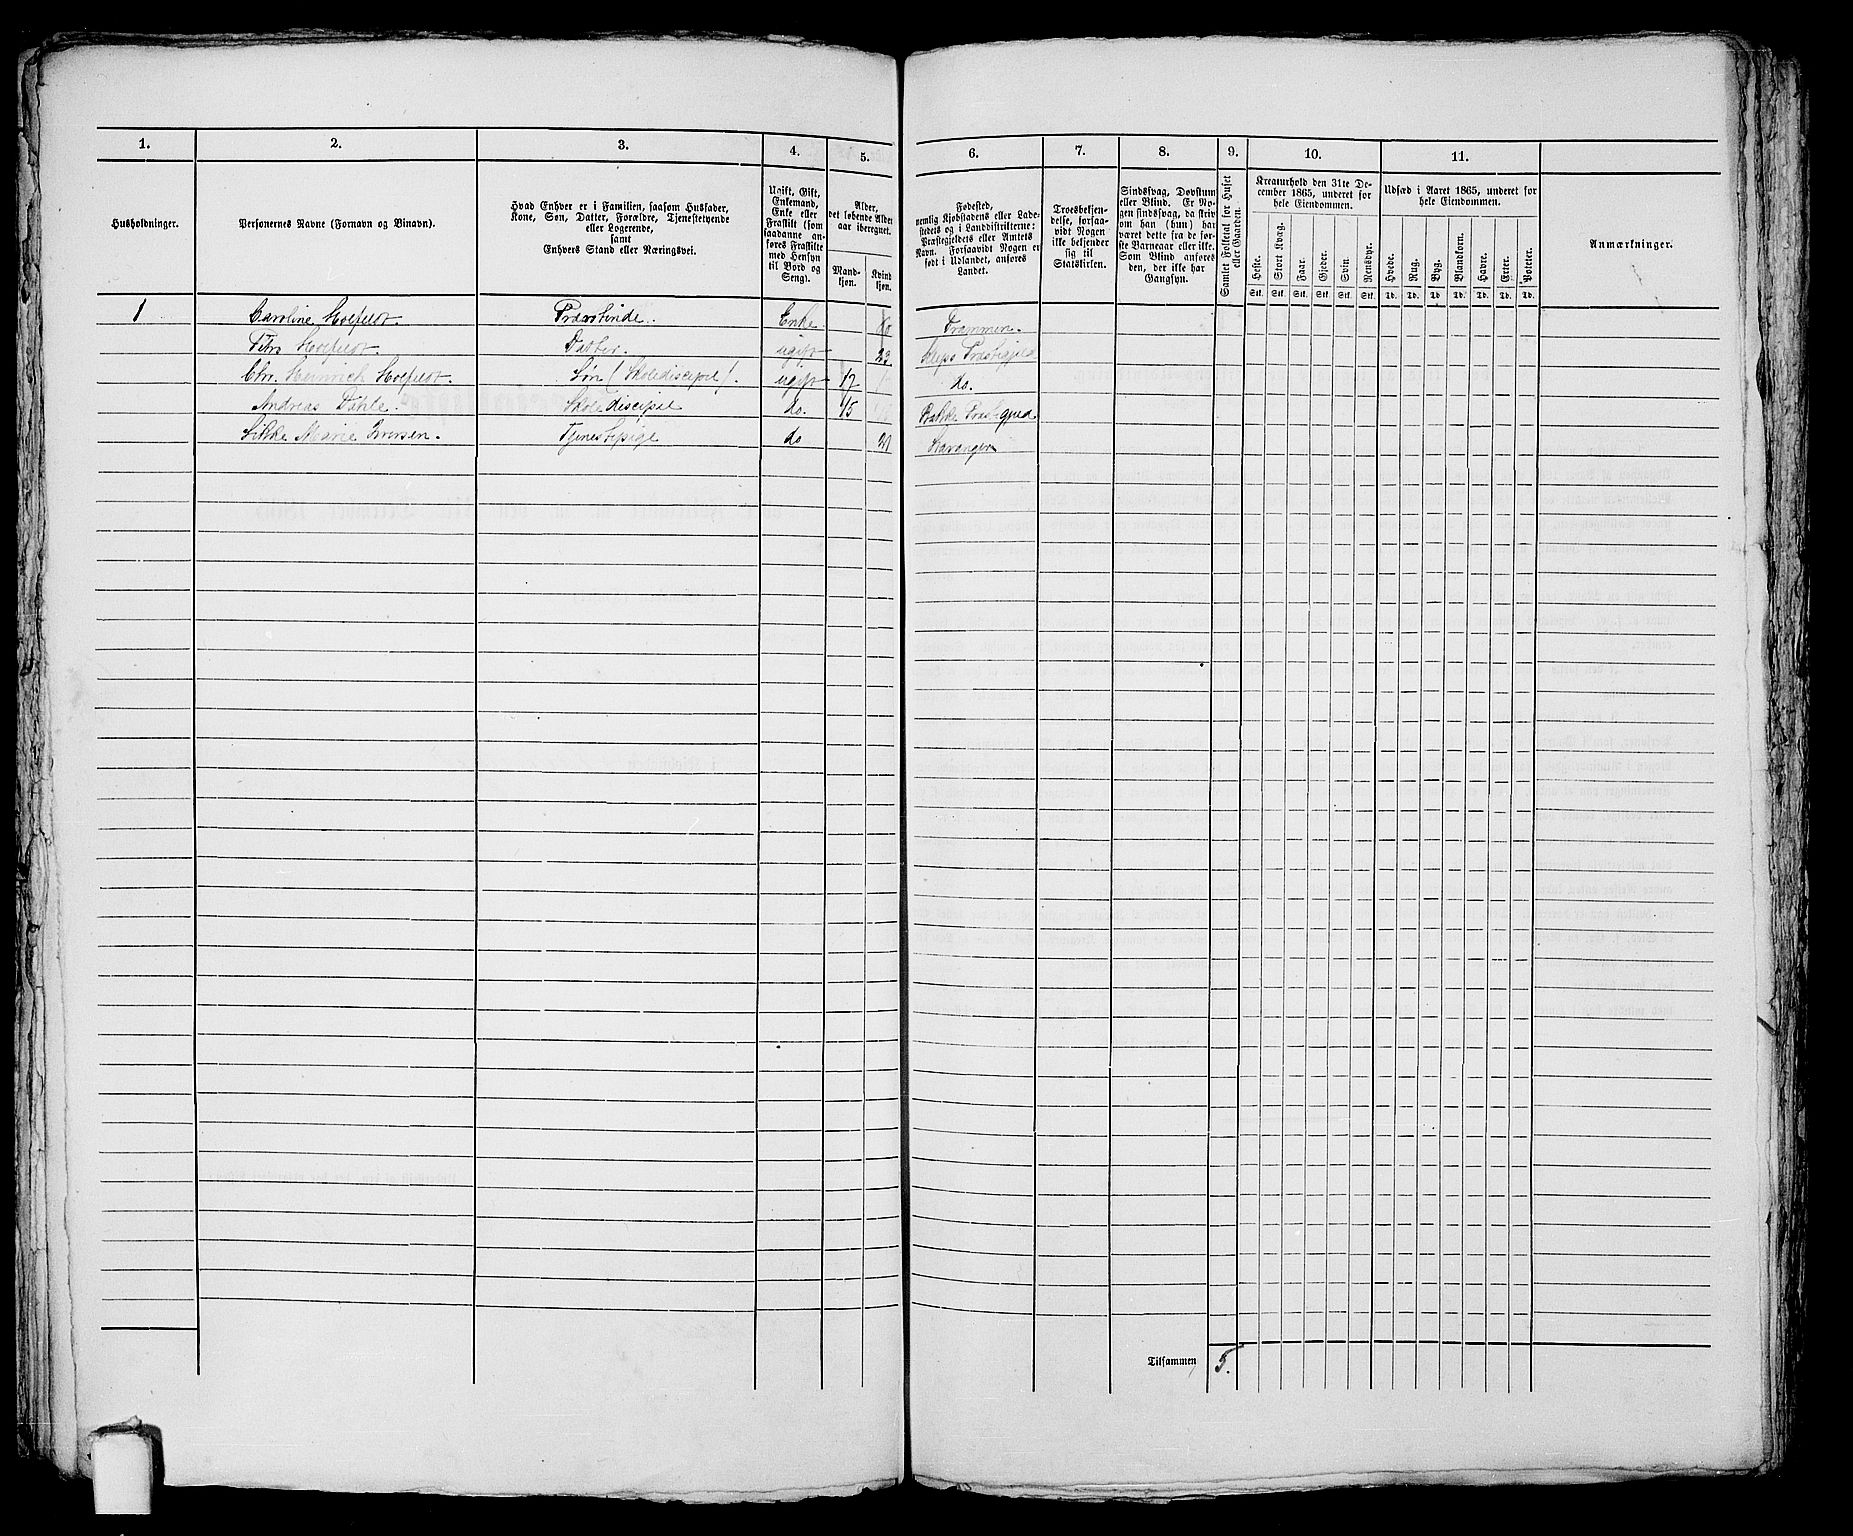 1. 2. 3. 4. 5. 6. 7. 8. 9. 10. 11.
Husholdninger.
Personernes Navne (Fornavn og Binavn).
Hvad Enhver er i Familien, saasom Husfader,
Kone, Søn, Datter, Forældre, Tjenestetyende
eller Logerende,
samt
Enhvers Stand eller Næringsvei.
Ugift, Gift,
Enkemand,
Enke eller
Fraskilt (som
saadanne an-
føres Fraskilte
med Hensyn
til Bord og
Seng).
Alder,
det løbende Alder
aar iberegnet.
Mand-
kjøn.
Kvind
kjøn.
Fødested,
nemlig Kjøbstadens eller Lade-
stedets og i Landdistrikterne:
Præstegjeldets eller Amtets
Navn. Forsaavidt Nogen er
født i Udlandet, anføres
Landet.
Troesbekjen-
delse, forsaa-
vidt Nogen
ikke bekjender
sig til
Statskirken.
Sindssvag, Døvstum
eller Blind. Er No-
gen sindssvag, da skriv
om han (hun) har
været dette fra de før-
ste Barneaar eller ikke.
Som Blind anføres
den, der ikke har
Gangsyn.
Samlet Folketal for Huset
eller Gaarden.
Kreaturhold den 31te De-
cember 1865, underet for
hele Eiendommen.
Heste. Stort Kvæg. Faar. Gjeder. Svin. Rensdyr.
Stk. Stk. Stk. Stk. Stk. Stk.
Udsæd i Aaret 1865, underet for
hele Eiendommen.
Hvede. Rug. Byg. Blandkorn. Havre. Erter. Poteter.
Td. Td. Td. Td. Td. Td. Td.
Anmærkninger.
1 Caroline Holfeldt. Præstinde. Enke Drammen.
Holfeldt. Datter. ugift 23 Kleps Præstegjeld
Chr. Heinrich Holfeldt. Søn (Skolediscipel). ugift 17 do.
Andreas Dahle. Skolediscipel do. 15
Marie Iversen. Tjenestepige do 21 Stavanger
Tilsammen 5.